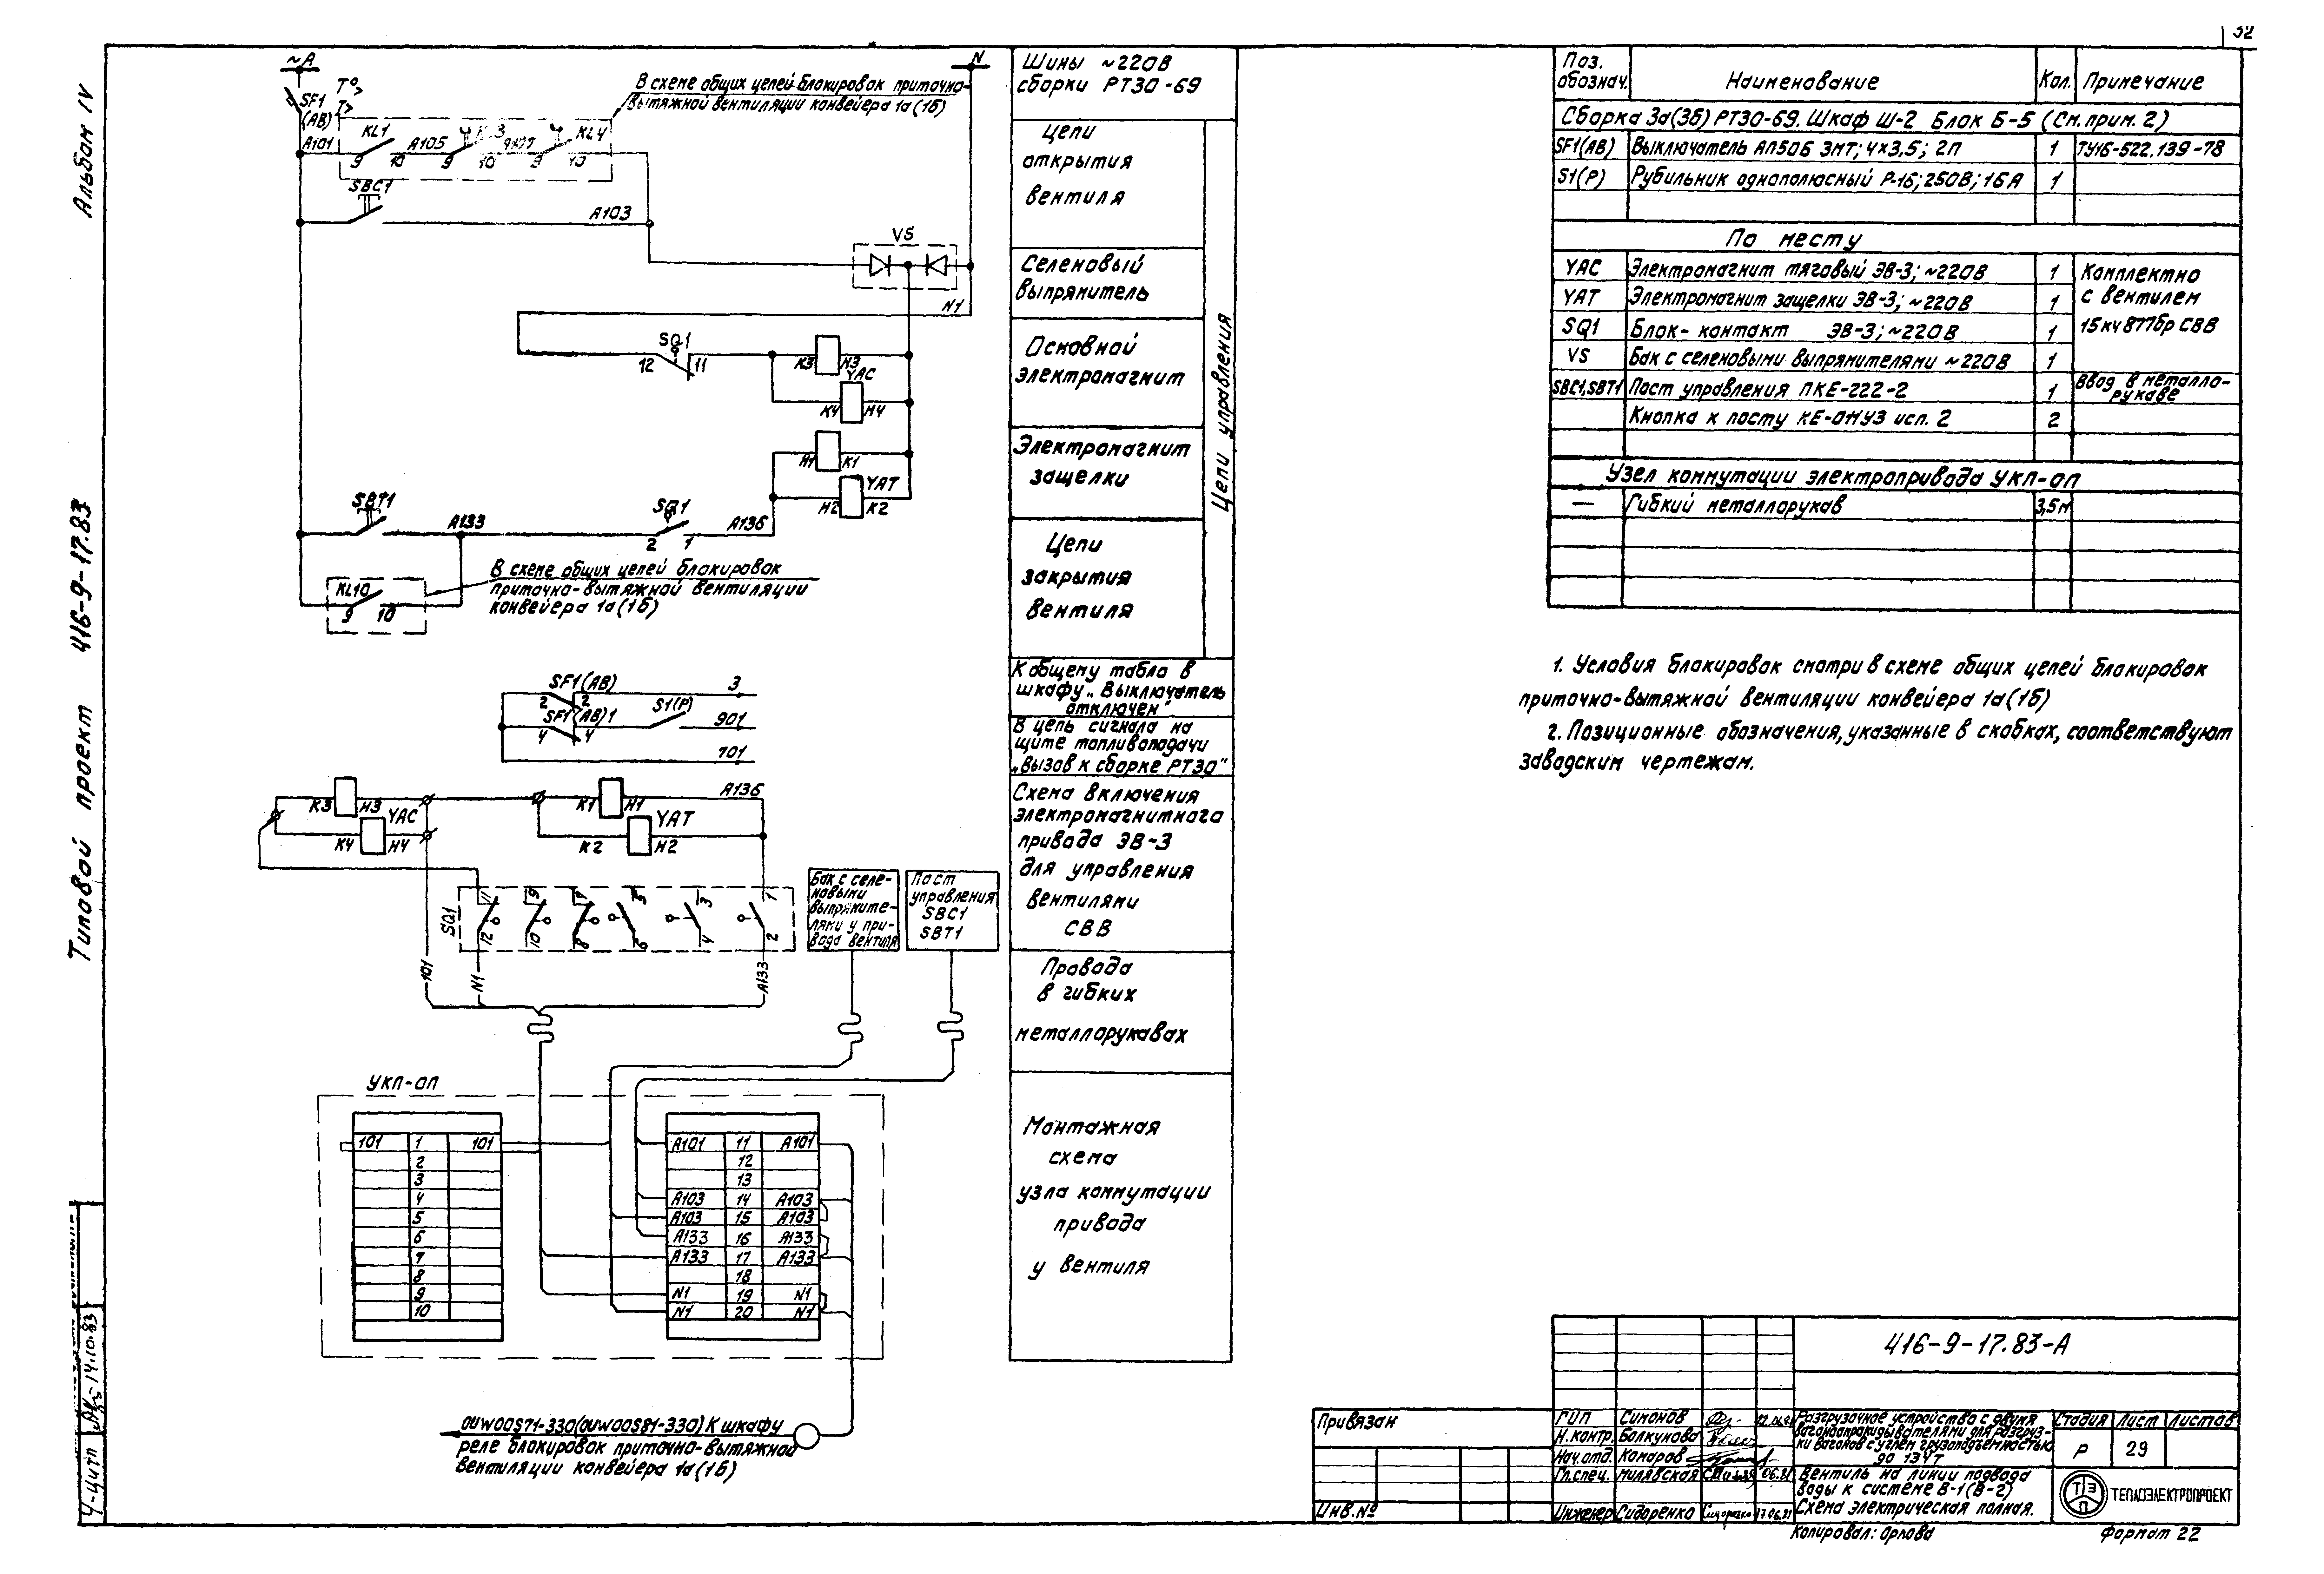 Альбом IV
Типовой проект 416-9-17.83
~А
N
SF1
(АВ)
В схеме общих цепей блокировок приточно-
вытяжной вентиляции конвейера 1а(1б)
А101
KL1
А105
KL4
9 10 9 10 9 10
SBC1
А103
VS
N1
SQ1
12 11
К3 Н3
YAC
К4 Н4
Н1 К1
YAT
Н2 К2
SBT1
А133
SQ1
2 1
А136
KL10
9 10
В схеме общих цепей блокировок
приточно-вытяжной вентиляции
конвейера 1а(1б)
SF1(АВ)
2 2
3
SF1(АВ)1
4 4
S1(Р)
901
701
К3 Н3
YAC
К4 Н4
К1 Н1
А136
YAT
К2 Н2
SQ1
11 9 7 5 3 1
12 10 8 6 4 2
101
N1
А133
Бак с селе-
новыми
выпрямите-
лями у при-
вода вентиля
Пост
управления
SBC1
SBT1
УКП-ОП
101 1 101
2
3
4
5
6
7
8
9
10
А101 11 А101
12
13
А103 14 А103
А103 15 А103
А133 16 А133
А133 17 А133
18
N1 19 N1
N1 20 N1
0UW00S71-330(0UW00S81-330) К шкафу
реле блокировок приточно-вытяжной
вентиляции конвейера 1а(1б)
Шины ~220В
сборки РТ30-69
Цепи
открытия
вентиля
Селеновый
выпрямитель
Основной
электромагнит
Электромагнит
защелки
Цепи
закрытия
вентиля
Цепи управления
К общему табло в
шкафу „Выключатель
отключен"
В цепь сигнала на
щите топливоподачи
„Вызов к сборке РТ30"
Схема включения
электромагнитного
привода ЭВ-3
для управления
вентилями
СВВ
Провода
в гибких
металлорукавах
Монтажная
схема
узла коммутации
привода
у вентиля
Поз. обознач. Наименование Кол. Примечание
Сборка 3а(3б) РТ30-69. Шкаф Ш-2 Блок Б-5 (См. прим. 2)
SF1(АВ) Выключатель АП50Б 3МТ; 4×3,5; 2П 1 ТУ16-522.139-78
S1(Р) Рубильник однополюсный Р-16; 250В; 16А 1
По месту
YAC Электромагнит тяговый ЭВ-3; ~220В 1 Комплектно
YAT Электромагнит защелки ЭВ-3; ~220В 1 с вентилем
SQ1 Блок-контакт ЭВ-3; ~220В 1 15кч877бр СВВ
VS Бак с селеновыми выпрямителями ~220В 1
SBC1, SBT1 Пост управления ПКЕ-222-2 1 Ввод в металло-рукаве
Кнопка к посту КЕ-011У3 исп. 2 2
Узел коммутации электропривода УКП-ОП
— Гибкий металлорукав 3,5м
1. Условия блокировок смотри в схеме общих цепей блокировок
приточно-вытяжной вентиляции конвейера 1а(1б)
2. Позиционные обозначения, указанные в скобках, соответствуют
заводским чертежам.
416-9-17.83-А
Привязан
Инв.№
ГИП Симонов
Н.контр. Болкунова
Нач.отд. Комаров
Гл.спец. Милявская 06.81
Инженер Сидоренко 17.06.81
Разгрузочное устройство с двумя
вагоноопрокидывателями для разгруз-
ки вагонов с углем грузоподъемностью
до 134т
Стадия Лист Листов
Р 29
Вентиль на линии подвода
воды к системе В-1(В-2)
Схема электрическая полная.
ТЭП
ТЕПЛОЭЛЕКТРОПРОЕКТ
Копировал: Орлова
Формат 22
14.10.83